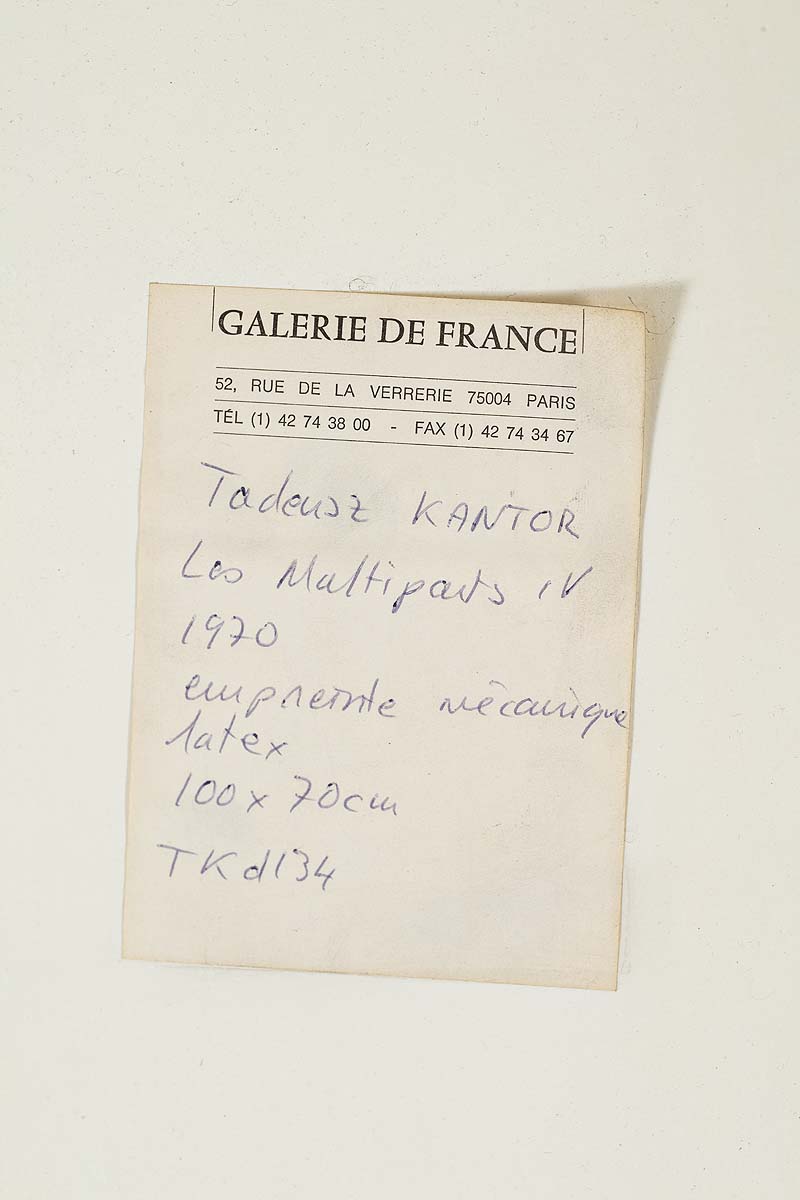 GALERIE DE FRANCE
52, RUE DE LA VERRERIE 75004 PARIS
TÉL (1) 42 74 38 00 - FAX (1) 42 74 34 67
Tadeusz KANTOR
Les Multiparts IV
1970
empreinte mécanique
latex
100 x 70cm
TKd134